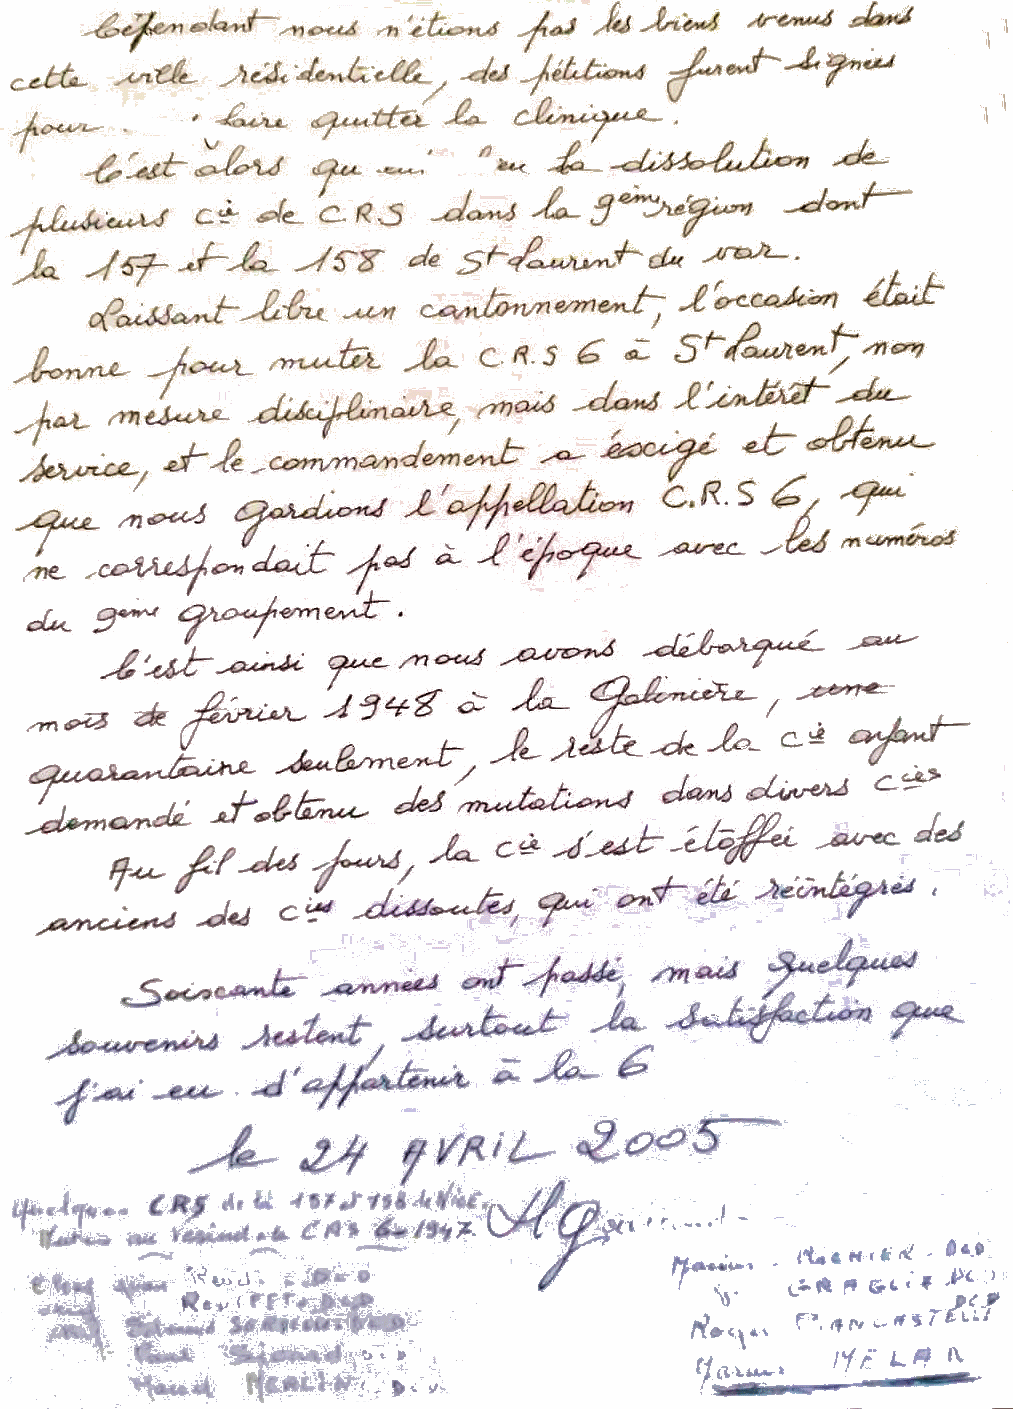 Cépendant nous n'étions pas les biens venus dans
cette ville résidentielle, des pétitions furent signées
pour faire quitter la clinique.
C'est alors qu eu la dissolution de
plusieurs Cie de C.R.S dans la 9ème région dont
la 157 et la 158 de St Laurent du var.
Laissant libre un cantonnement, l'occasion était
bonne pour muter la C.R.S 6 à St Laurent, non
par mesure disciplinaire, mais dans l'intérêt du
service, et le commandement a éxcigé et obtenu
que nous gardions l'appellation C.R.S 6, qui
ne correspondait pas à l'époque avec les numéros
du 9ème groupement.
C'est ainsi que nous avons débarqué au
mois de février 1948 à la Galinière, une
quarantaine seulement, le reste de la Cie ayant
demandé et obtenu des mutations dans divers Cies
Au fil des jours, la Cie s'est étoffée avec des
anciens des Cies dissoutes, qui ont été réintégrés.
Soixante années ont passé, mais quelques
souvenirs restent, surtout la satisfaction que
j'ai eu d'appartenir à la 6
le 24 AVRIL 2005
CRS de la 157 et 158 de Nice
au Vésinet CRS 6 1947
DCD
GRAGLIA DCD
DCD
Roger PIANCASTELLI
Paul
Marcel MERLIN
MELAR